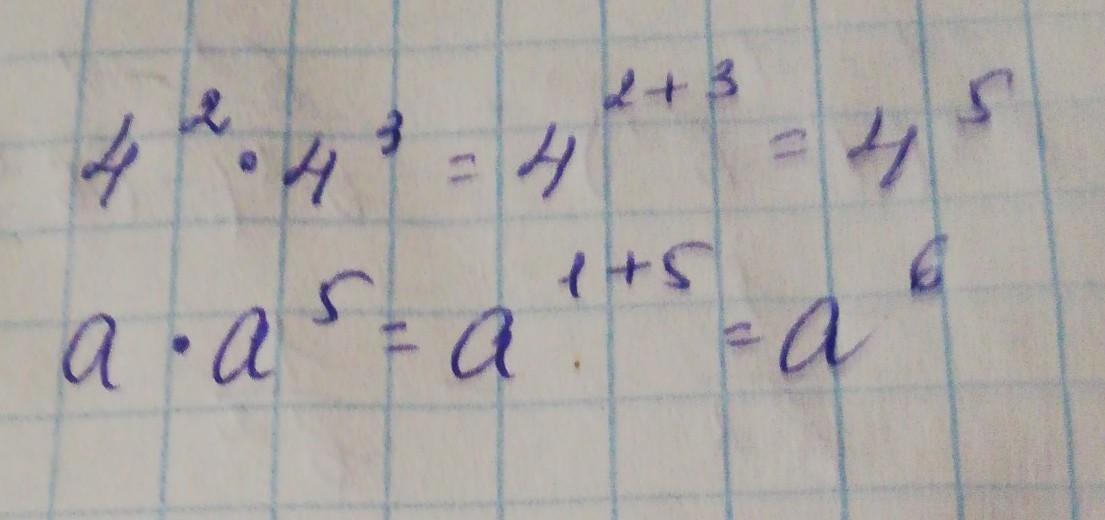 4² · 4³ = 4²⁺³ = 4⁵
a · a⁵ = a¹⁺⁵ = a⁶